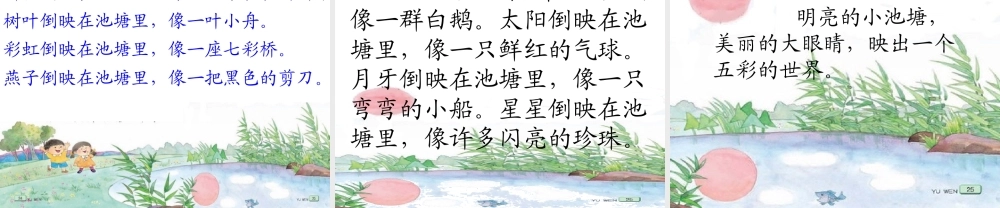 树叶倒映在池塘里，像一叶小舟。
彩虹倒映在池塘里，像一座七彩桥。
燕子倒映在池塘里，像一把黑色的剪刀。
像一群白鹅。太阳倒映在池
塘里，像一只鲜红的气球。
月牙倒映在池塘里，像一只
弯弯的小船。星星倒映在池
塘里，像许多闪亮的珍珠。
YU WEN
明亮的小池塘，
美丽的大眼睛，映出一个
五彩的世界。
YU WEN 25